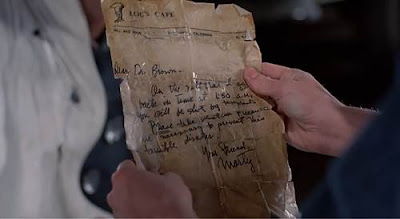 LOU'S CAFE
CALIFORNIA
Dear Dr. Brown—
On the night that I go
back in time at 1:30 A.M.
you will be shot by terrorists.
Please take whatever
are necessary to prevent this
terrible disaster.
Your Friend,
Marty